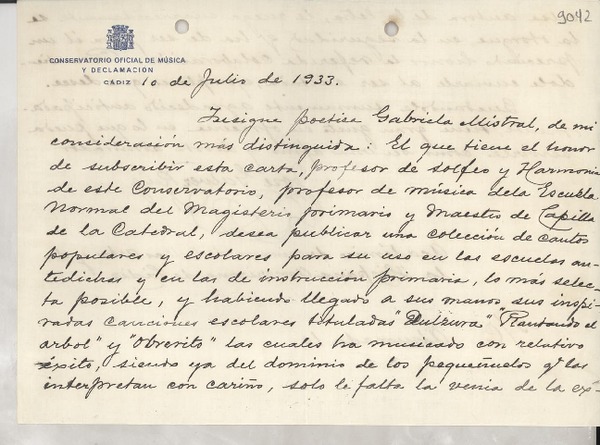 9042
CONSERVATORIO OFICIAL DE MÚSICA
Y DECLAMACIÓN
CÁDIZ 10 de Julio de 1933.
Insigne poetica Gabriela Mistral, de mi
consideración más distinguida: El que tiene el honor
de subscribir esta carta, profesor de solfeo y Harmonia
de este Conservatorio, profesor de música dela Escuela
Normal del Magisterio primario y Maestro de Capilla
de la Catedral, desea publicar una colección de cantos
populares y escolares para su uso en las escuelas an-
tedichas y en las de instrucción primaria, lo más selec-
ta posible, y habiendo llegado a sus manos sus inspi-
radas canciones escolares tituladas "Dulzura" "Plantando el
arbol" y "Obrerito" las cuales ha musicado con relativo
éxito, siendo ya del dominio de los pequeñuelos q. las
interpretan con cariño, solo le falta la venia de la ex-